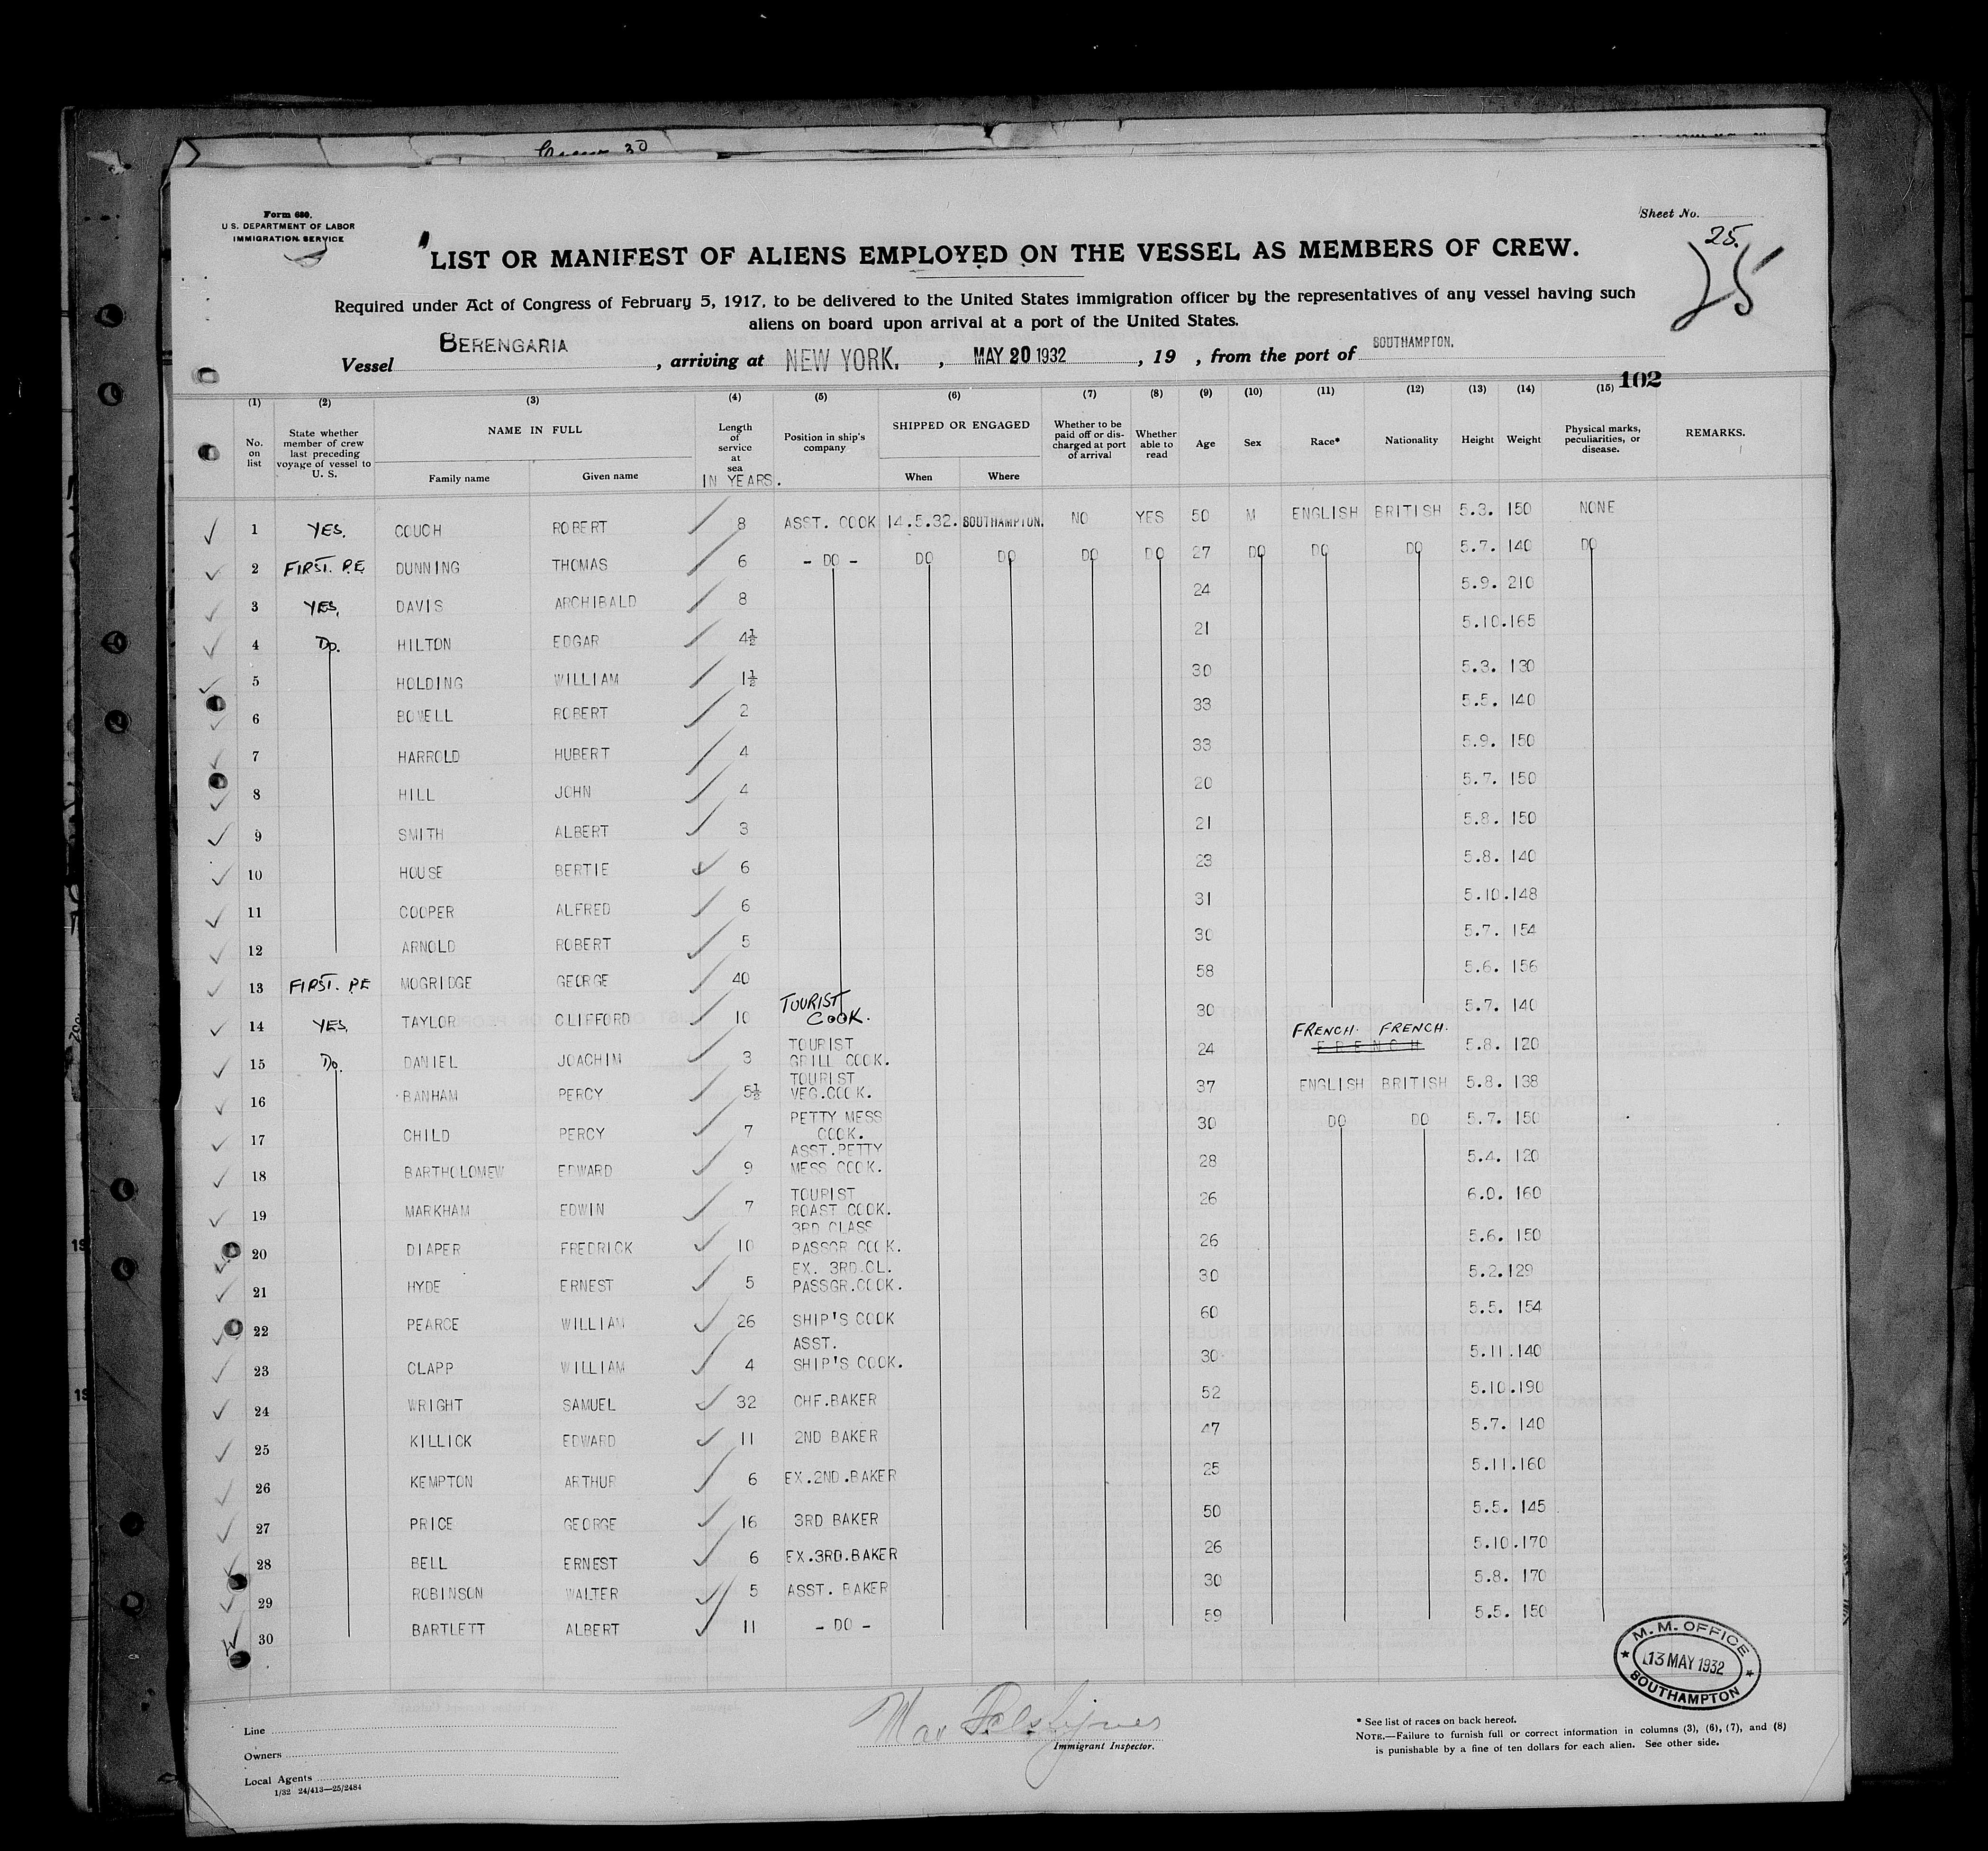 Crew 30
Form 680.
U.S. DEPARTMENT OF LABOR
IMMIGRATION SERVICE
Sheet No.
25.
25
LIST OR MANIFEST OF ALIENS EMPLOYED ON THE VESSEL AS MEMBERS OF CREW.
Required under Act of Congress of February 5, 1917, to be delivered to the United States immigration officer by the representatives of any vessel having such
aliens on board upon arrival at a port of the United States.
Vessel BERENGARIA, arriving at NEW YORK., MAY 20 1932, 19 , from the port of SOUTHAMPTON.
102
(1) (2) (3) (4) (5) (6) (7) (8) (9) (10) (11) (12) (13) (14) (15)
No. on list
State whether member of crew last preceding voyage of vessel to U. S.
NAME IN FULL
Family name Given name
Length of service at sea
IN YEARS.
Position in ship's company
SHIPPED OR ENGAGED
When Where
Whether to be paid off or discharged at port of arrival
Whether able to read
Age Sex Race* Nationality Height Weight
Physical marks, peculiarities, or disease.
REMARKS.
1 YES. COUCH ROBERT 8 ASST. COOK 14.5.32. SOUTHAMPTON. NO YES 50 M ENGLISH BRITISH 5.3. 150 NONE
2 FIRST. P.E DUNNING THOMAS 6 - DO - DO DO DO DO 27 DO DO DO 5.7. 140 DO
3 YES. DAVIS ARCHIBALD 8 24 5.9. 210
4 Do. HILTON EDGAR 4½ 21 5.10. 165
5 HOLDING WILLIAM 1½ 30 5.3. 130
6 BOWELL ROBERT 2 33 5.5. 140
7 HARROLD HUBERT 4 33 5.9. 150
8 HILL JOHN 4 20 5.7. 150
9 SMITH ALBERT 3 21 5.8. 150
10 HOUSE BERTIE 6 23 5.8. 140
11 COOPER ALFRED 6 31 5.10. 148
12 ARNOLD ROBERT 5 30 5.7. 154
13 FIRST. P.E MOGRIDGE GEORGE 40 58 5.6. 156
14 YES. TAYLOR CLIFFORD 10 TOURIST COOK. 30 5.7. 140
15 Do. DANIEL JOACHIM 3 TOURIST GRILL COOK. 24 FRENCH. FRENCH. FRENCH 5.8. 120
16 BANHAM PERCY 5½ TOURIST VEG.COOK. 37 ENGLISH BRITISH 5.8. 138
17 CHILD PERCY 7 PETTY MESS COOK. 30 DO DO 5.7. 150
18 BARTHOLOMEW EDWARD 9 ASST.PETTY MESS COOK. 28 5.4. 120
19 MARKHAM EDWIN 7 TOURIST ROAST COOK. 26 6.0. 160
20 DIAPER FREDRICK 10 3RD CLASS PASSGR COOK. 26 5.6. 150
21 HYDE ERNEST 5 EX. 3RD.CL. PASSGR.COOK. 30 5.2. 129
22 PEARCE WILLIAM 26 SHIP'S COOK 60 5.5. 154
23 CLAPP WILLIAM 4 ASST. SHIP'S COOK. 30 5.11. 140
24 WRIGHT SAMUEL 32 CHF.BAKER 52 5.10. 190
25 KILLICK EDWARD 11 2ND BAKER 47 5.7. 140
26 KEMPTON ARTHUR 6 EX.2ND.BAKER 25 5.11. 160
27 PRICE GEORGE 16 3RD BAKER 50 5.5. 145
28 BELL ERNEST 6 EX.3RD.BAKER 26 5.10. 170
29 ROBINSON WALTER 5 ASST. BAKER 30 5.8. 170
30 BARTLETT ALBERT 11 - DO - 59 5.5. 150
M. M. OFFICE
13 MAY 1932
SOUTHAMPTON
Line
Owners
Local Agents
1/32 24/413—25/2484
Immigrant Inspector.
* See list of races on back hereof.
NOTE.—Failure to furnish full or correct information in columns (3), (6), (7), and (8)
is punishable by a fine of ten dollars for each alien. See other side.